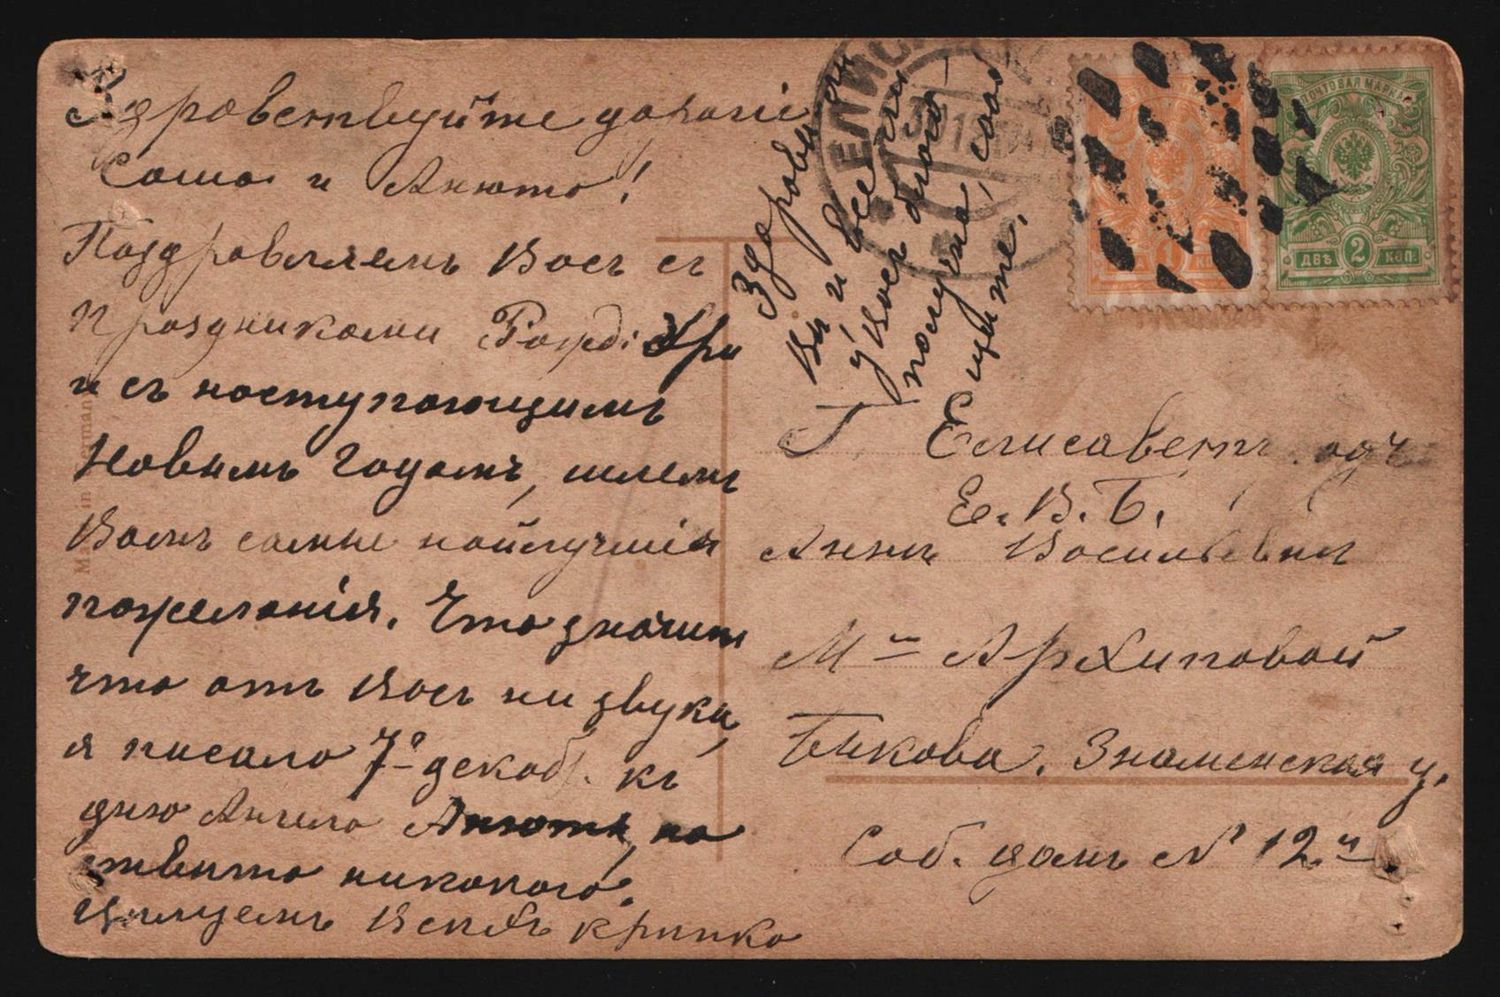 Здровствуйте дорогіе
Соша и Анюта!
Поздровляемъ Васъ съ
праздниками Рожд: Хри
и съ наступающимъ
Новымъ Годомъ, шлемъ
Вамъ самые найлучшія
пожеланія. Что значит
что отъ Васъ ни звука,
я писала 7го декаб. къ
дню Ангела Анюты, но
ответа никокого.
Цилуемъ Всехъ крипко
Здоровы ли
Вы и все ли
у Васъ благо-
получно, сооб
щите.
Г. Елисаветгрод
Е. В. Б.
Анне Васильевне
Архиповой
Быкова. Знаменская у.
Соб. домъ № 12й
ЕЛИСА
ПОЧТОВАЯ МАРКА
1
ДВѢ 2 КОП.
Made in Germany